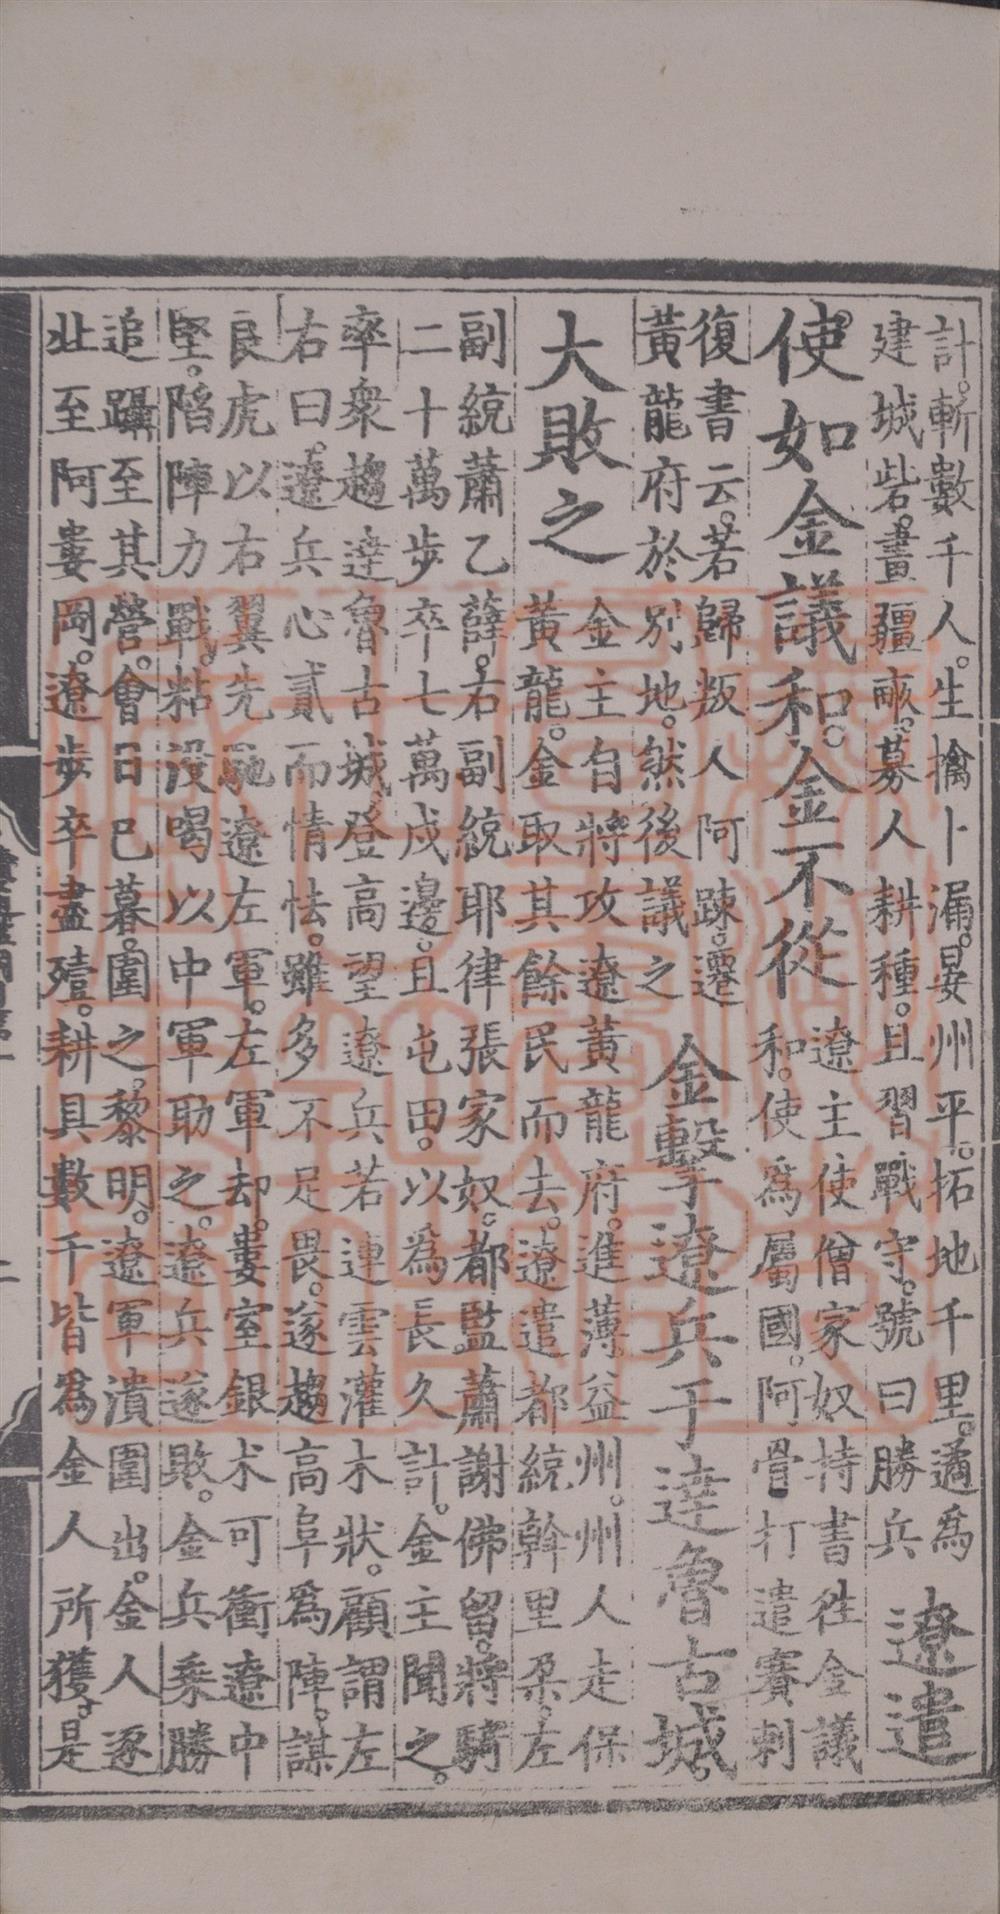 計。斬數千人。生擒卜漏。晏州平。拓地千里。遹爲
建城砦。畫疆畝。募人耕種。且習戰守。號曰勝兵
遼遣
使如金議和。金不從
遼主使僧家奴持書往金議
和。使爲屬國。阿骨打遣賽剌
復書云。若歸叛人阿踈。遷
黃龍府於別地。然後議之
金擊遼兵于達魯古城。
大敗之
金主自將攻遼黃龍府。進薄益州。州人走保
黃龍。金取其餘民而去。遼遣都統斡里朶。左
副統蕭乙薛。右副統耶律張家奴。都監蕭謝佛留。將騎
二十萬步卒七萬戍邊。且屯田。以爲長久計。金主聞之。
率衆趨達魯古城登高望遼兵若連雲灌木狀。顧謂左
右曰。遼兵心貳而情怯。雖多不足畏。遂趨高阜爲陣。謀
良虎以右翼先馳遼左軍。左軍却。婁室銀术可衝遼中
堅。陷陣力戰。粘沒喝以中軍助之。遼兵遂敗。金兵乘勝
追躡至其營。會日已暮。圍之。黎明。遼軍潰圍出。金人逐
北至阿婁岡。遼步卒盡殪。耕具數千皆爲金人所獲。是